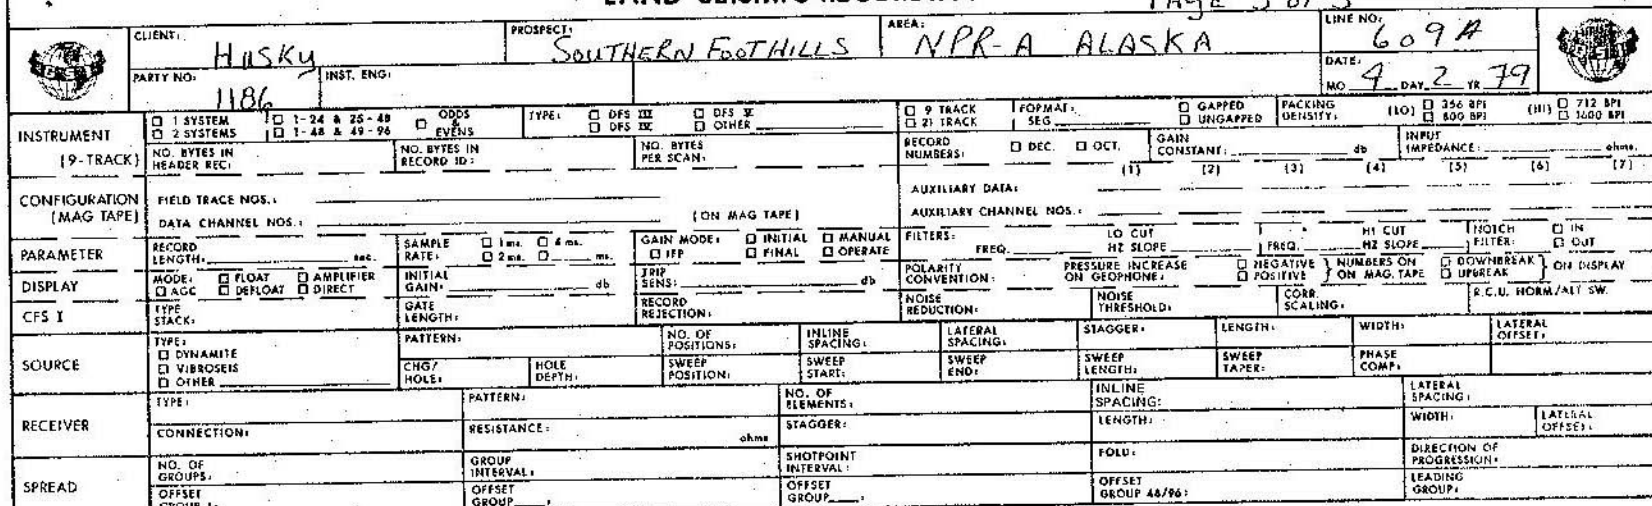 PAGE 3 OF 3
CLIENT: Husky PROSPECT: SOUTHERN FOOTHILLS AREA: NPR-A ALASKA LINE NO: 609A
PARTY NO: 1186 INST. ENG: DATE: MO 4 DAY 2 YR 79
INSTRUMENT (9-TRACK) ☐ 1 SYSTEM ☐ 1-24 & 25-48 ☐ ODDS & EVENS TYPE: ☐ DFS III ☐ DFS V ☐ 9 TRACK FORMAT: ☐ GAPPED PACKING DENSITY: (LO) ☐ 356 BPI (HI) ☐ 712 BPI
☐ 2 SYSTEMS ☐ 1-48 & 49-96 ☐ DFS IV ☐ OTHER ☐ 21 TRACK SEG ☐ UNGAPPED ☐ 800 BPI ☐ 1600 BPI
NO. BYTES IN HEADER REC: NO. BYTES IN RECORD ID: NO. BYTES PER SCAN: RECORD NUMBERS: ☐ DEC. ☐ OCT. GAIN CONSTANT: db INPUT IMPEDANCE: ohms.
(1) (2) (3) (4) (5) (6) (7)
CONFIGURATION (MAG TAPE) FIELD TRACE NOS.: AUXILIARY DATA:
DATA CHANNEL NOS.: (ON MAG TAPE) AUXILIARY CHANNEL NOS.:
PARAMETER RECORD LENGTH: sec. SAMPLE RATE: ☐ 1 ms. ☐ 4 ms. ☐ 2 ms. ☐ ms. GAIN MODE: ☐ INITIAL ☐ MANUAL ☐ IFP ☐ FINAL ☐ OPERATE FILTERS: FREQ. LO CUT HZ SLOPE FREQ. HI CUT HZ SLOPE NOTCH FILTER: ☐ IN ☐ OUT
DISPLAY MODE: ☐ FLOAT ☐ AMPLIFIER ☐ AGC ☐ DEFLOAT ☐ DIRECT INITIAL GAIN: db TRIP SENS: db POLARITY CONVENTION: PRESSURE INCREASE ON GEOPHONE: ☐ NEGATIVE ☐ POSITIVE } NUMBERS ON MAG. TAPE ☐ DOWNBREAK ☐ UPBREAK } ON DISPLAY
CFS I TYPE STACK: GATE LENGTH: RECORD REJECTION: NOISE REDUCTION: NOISE THRESHOLD: CORR. SCALING: R.C.U. NORM/ALT SW.
SOURCE TYPE: PATTERN: NO. OF POSITIONS: INLINE SPACING: LATERAL SPACING: STAGGER: LENGTH: WIDTH: LATERAL OFFSET:
☐ DYNAMITE
☐ VIBROSEIS
☐ OTHER CHG/HOLE: HOLE DEPTH: SWEEP POSITION: SWEEP START: SWEEP END: SWEEP LENGTH: SWEEP TAPER: PHASE COMP:
RECEIVER TYPE: PATTERN: NO. OF ELEMENTS: INLINE SPACING: LATERAL SPACING:
CONNECTION: RESISTANCE: ohms STAGGER: LENGTH: WIDTH: LATERAL OFFSET:
SPREAD NO. OF GROUPS: GROUP INTERVAL: SHOTPOINT INTERVAL: FOLD: DIRECTION OF PROGRESSION:
OFFSET OFFSET GROUP : OFFSET GROUP : OFFSET GROUP 48/96: LEADING GROUP: